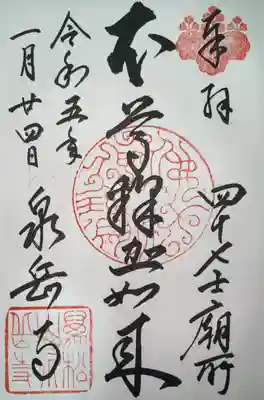 奉拝
四十七士廟所
本尊釋迦如来
令和五年
一月廿四日
泉岳寺